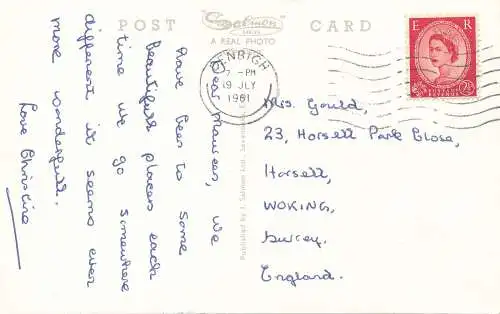 POST CARD
"Salmon"
A REAL PHOTO
Dear Maureen, We
have been to some
beautiful places each
time we go somewhere
different it seems even
more wonderful.
Love Christine
Published by J. Salmon Ltd., Sevenoaks
DENBIGH
7-PM
19 JLY
1961
E R
2½
Mrs. Gould,
23, Horsell Park Close,
Horsell,
WOKING,
Surrey.
England.